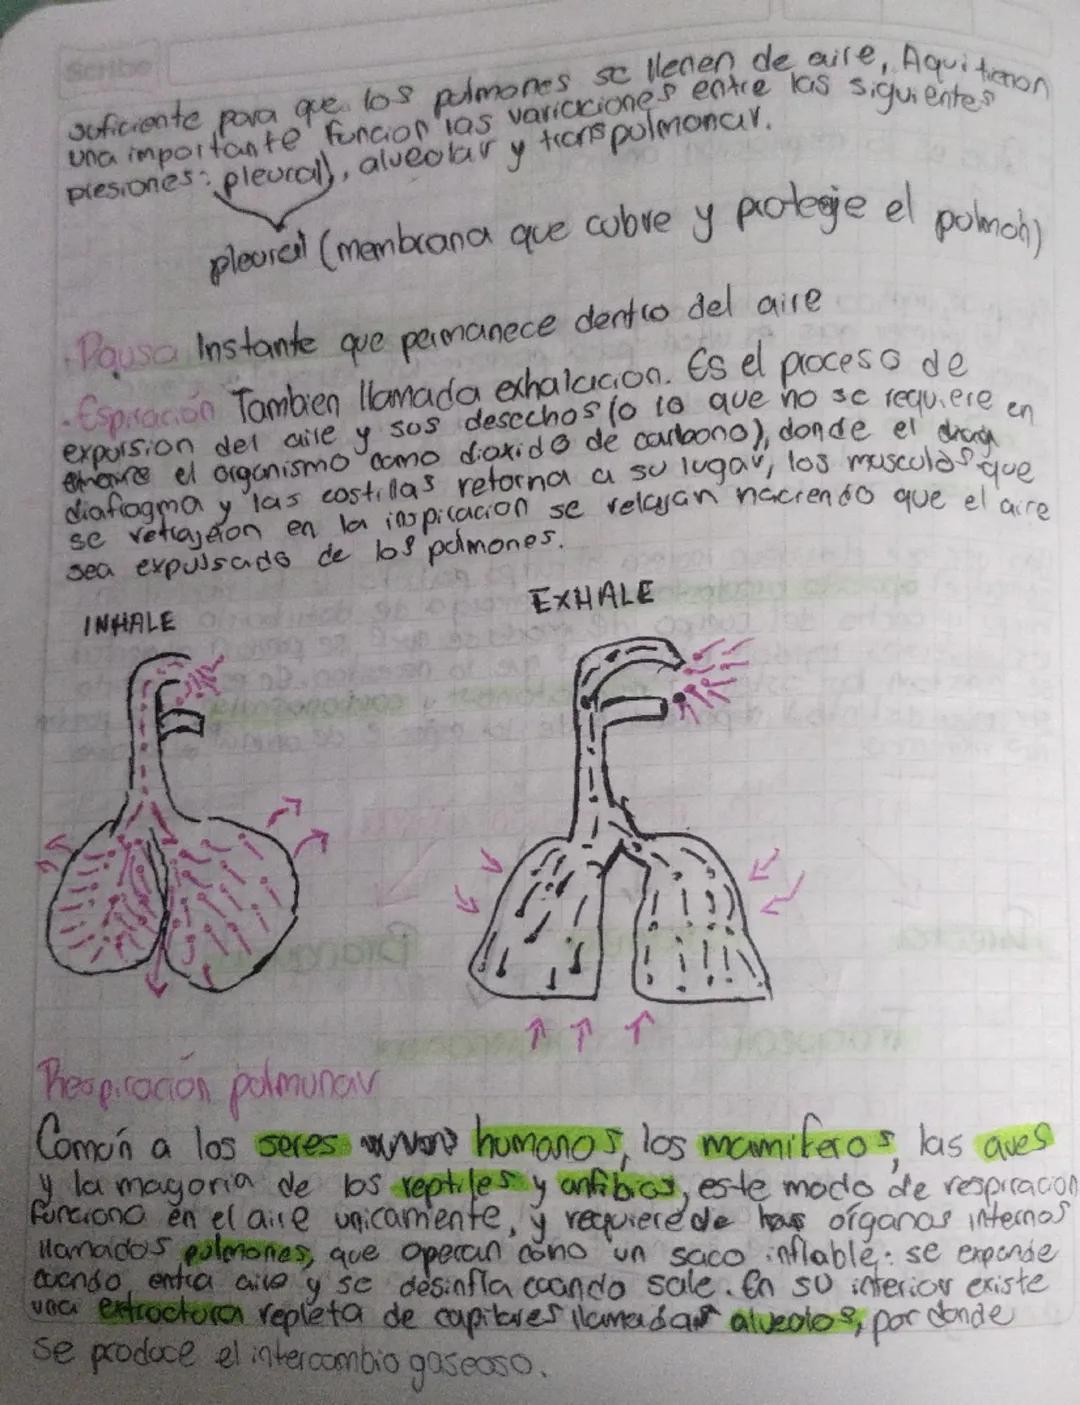 Scribe
suficiente para que los pulmones se llenen de aire, Aqui tienen
una importante funcion las variaciones entre las siguientes
presiones: pleural), alveolar y transpulmonar.
pleural (membrana que cubre y proteje el pulmon)
·Pausa Instante que permanece dentro del aire
·Espiración Tambien llamada exhalacion. Es el proceso de
expulsion del aire y sus desechos (o lo que no se requiere en
el organismo como dioxido de carbono), donde el
diafragma y las costillas retorna a su lugar, los musculos que
se retrajeron en la inspiracion se relajan haciendo que el aire
sea expulsado de los pulmones.
INHALE
EXHALE
Respiración pulmunar
Común a los seres humanos, los mamiferos, las aves
y la mayoria de los reptiles y anfibios, este modo de respiracion
funciona en el aire unicamente, y requiere de organos internos
llamados pulmones, que operan como un saco inflable: se expande
cuando entra aire y se desinfla cuando sale. En su interior existe
una extructura repleta de capilares llamadas alveolos, por donde
se produce el intercambio gaseoso.